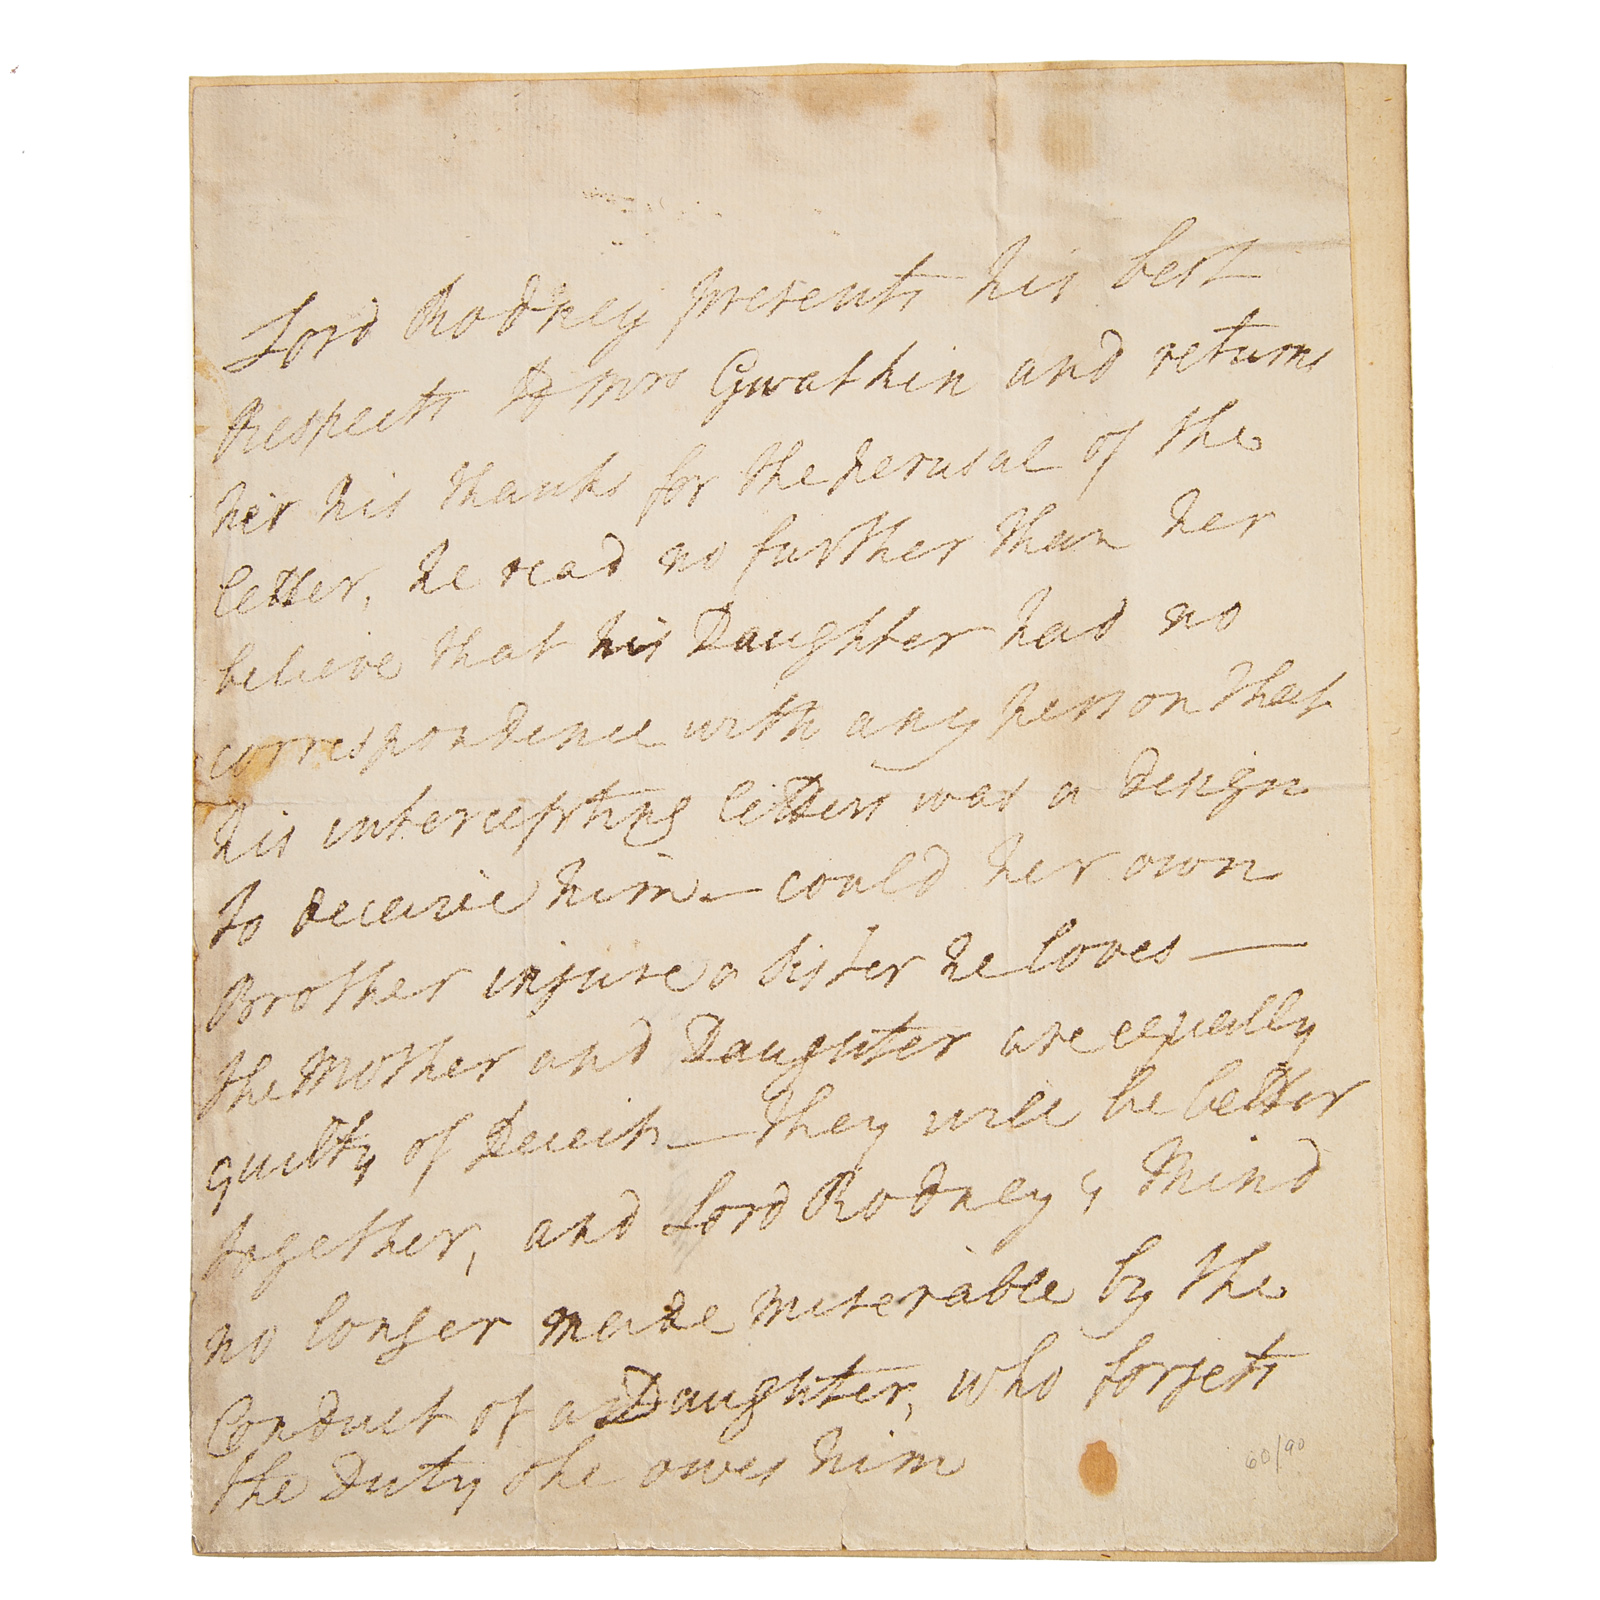 Lord Rodney presents his best
Respects to Mrs Gwatkin and returns
her his thanks for the perusal of the
letter, he read no further than her
believe that his Daughter had no
correspondence with any person that
his intercepting letters was a design
to deceive him — could her own
Brother injure a sister he loves —
the Mother and Daughter are equally
guilty of Deceit — they will be better
together, and Lord Rodney's Mind
no longer made miserable by the
Conduct of a Daughter, who forgets
the Duty she owes him
60/90